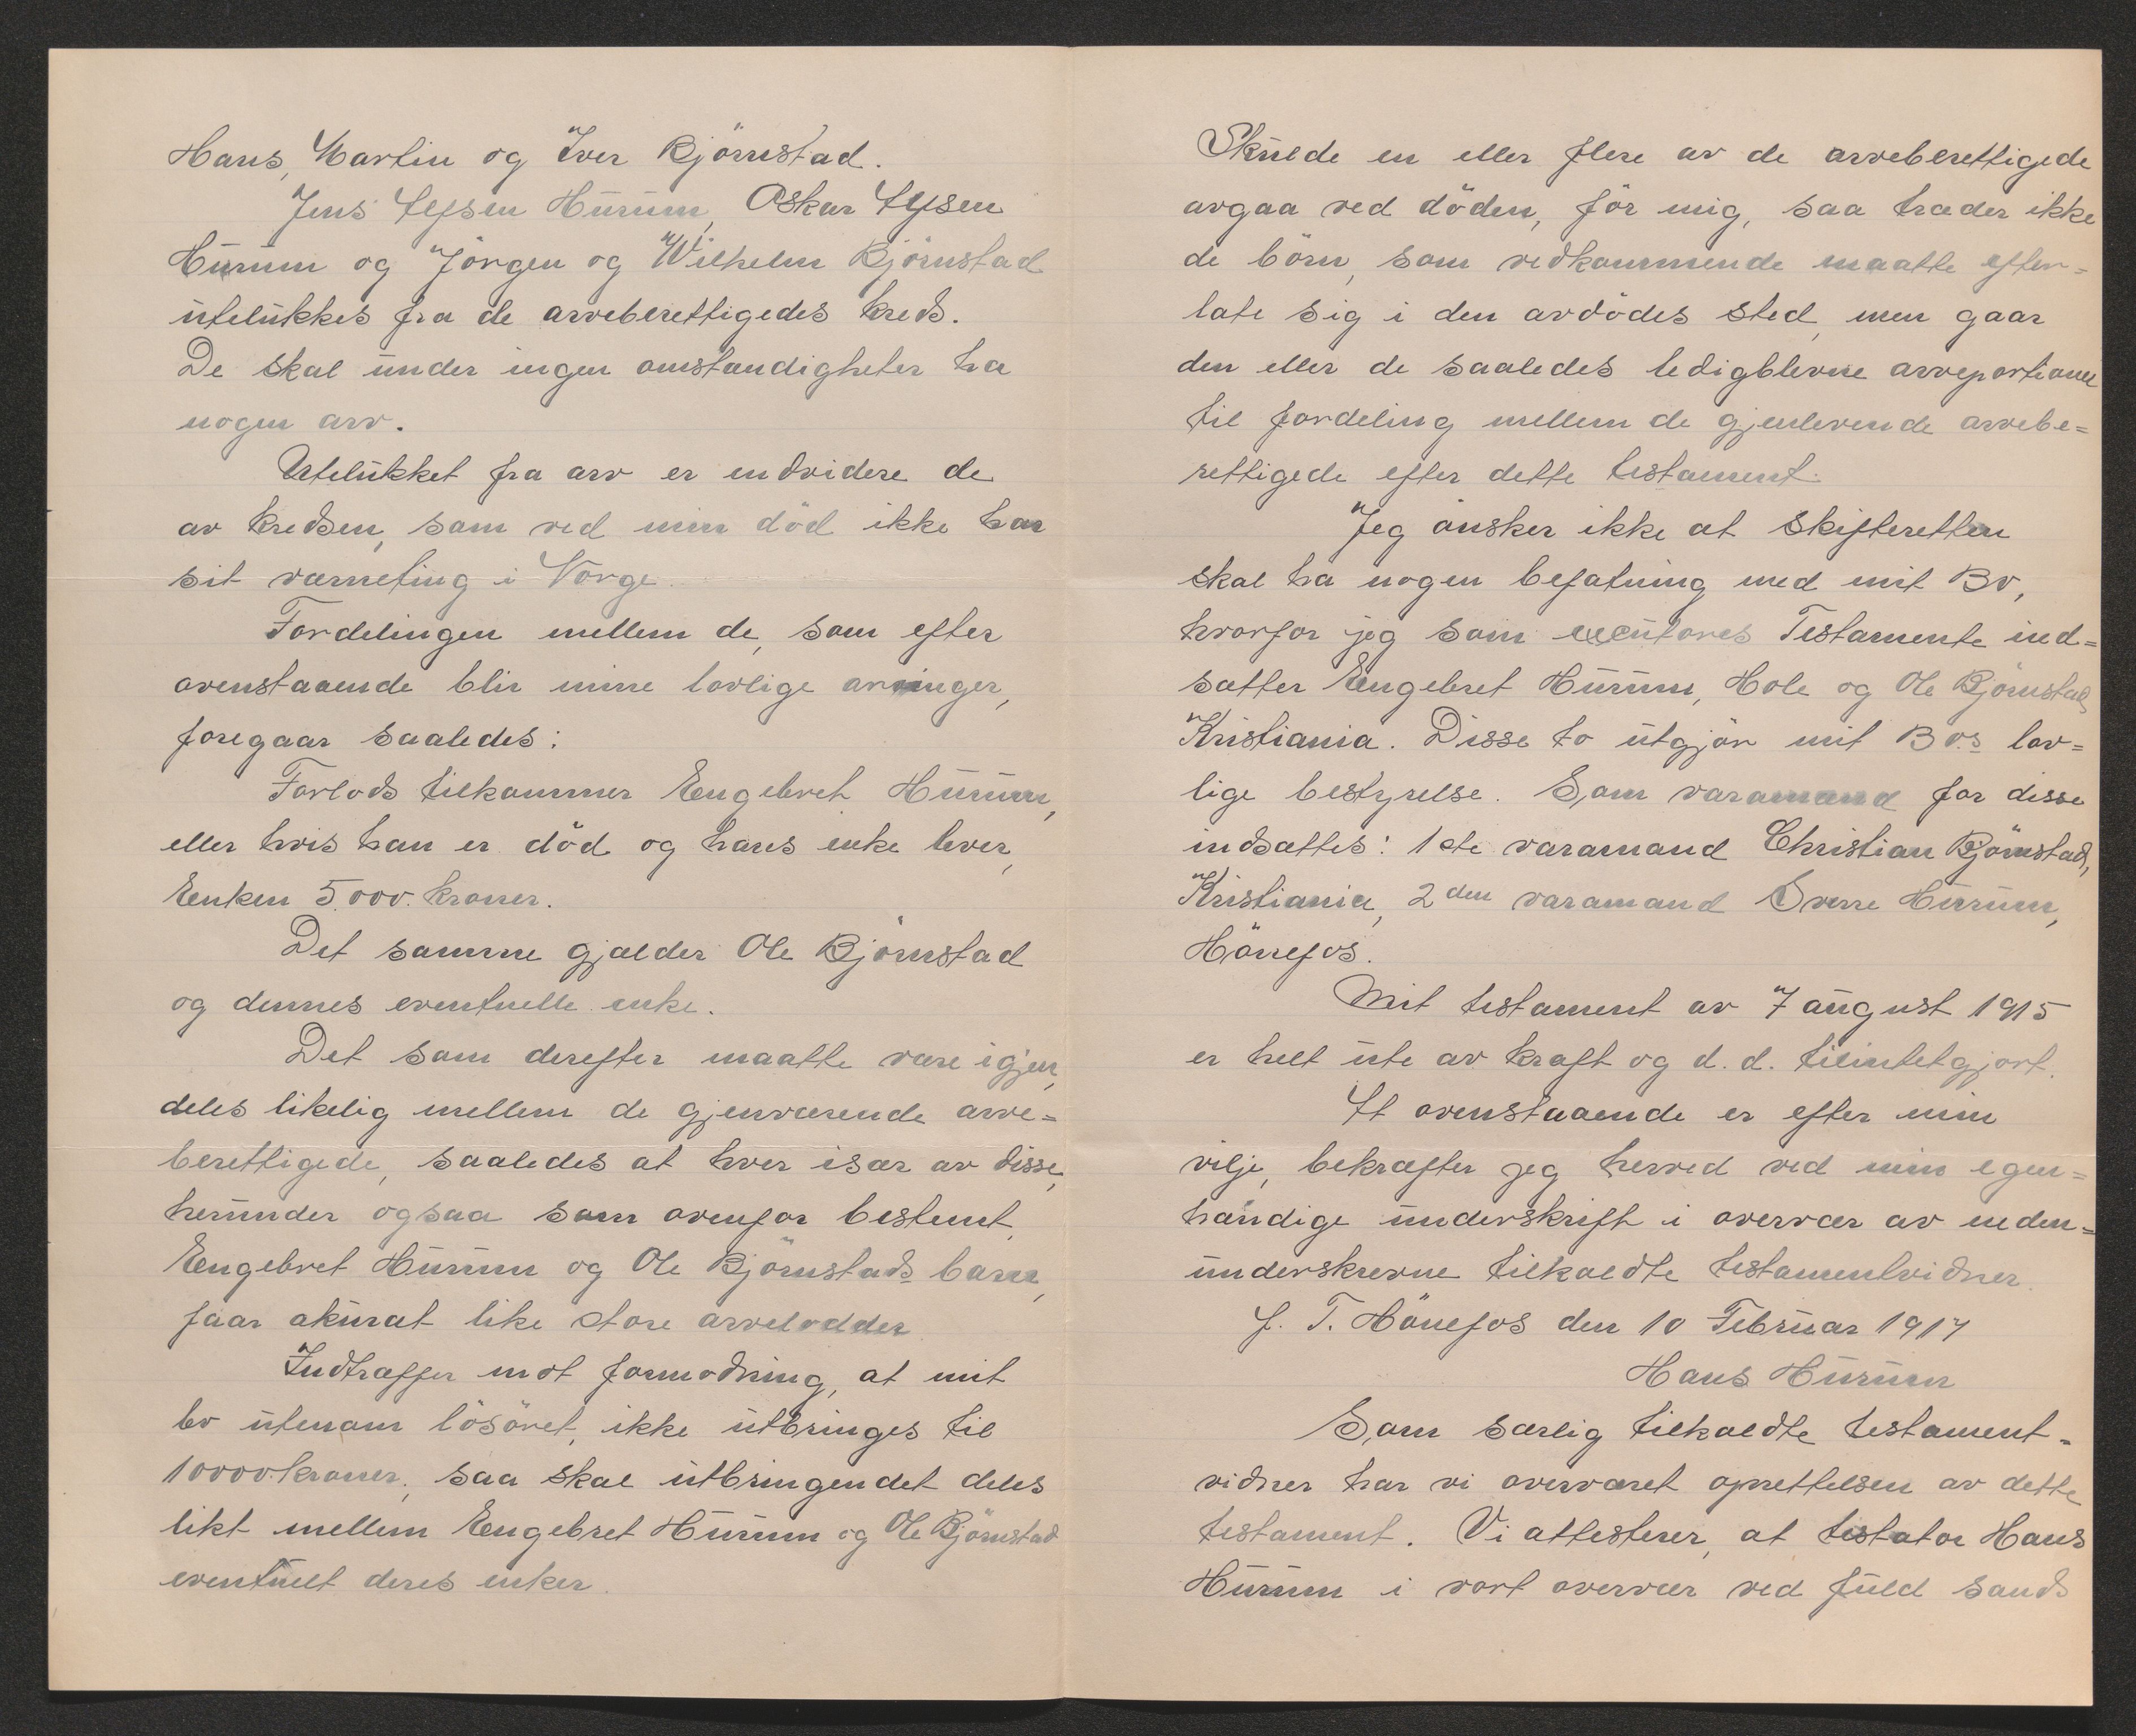 Hans, Martin og Iver Björnstad.
Jens Lysen Hurum, Oskar Lysen
Hurum og Jörgen og Wilhelm Björnstad
utelukkes fra de arveberettigedes kreds.
De skal under ingen omstændigheter ha
nogen arv.
Utelukket fra arv er endvidere de
av kredsen, som ved min död ikke har
sit værneting i Norge.
Fordelingen mellem de, som efter
ovenstaaende blir mine lovlige arvinger,
foregaar saaledes:
Forlods tilkommer Engebret Hurum,
eller hvis han er död og hans enke lever,
Enken 5.000. kroner.
Det samme gjælder Ole Björnstad
og dennes eventuelle enke.
Det som derefter maatte være igjen,
deles likelig mellem de gjenværende arve=
berettigede, saaledes at hver især av disse,
herunder ogsaa som ovenfor bestemt,
Engebret Hurum og Ole Björnstads barn,
faar akurat like store arvelodder
Indtræffer mot formodning, at mit
bo utenom lösöret, ikke utbringes til
10000 kroner, saa skal utbringendet deles
likt mellem Engebret Hurum og Ole Björnstad
eventuelt deres enker.
Skulde en eller flere av de arveberettigede
avgaa ved döden, för mig, saa træder ikke
de börn, som vedkommende maatte efter=
late sig i den avdödes sted, men gaar
den eller de saaledes ledigblevne arveportioner
til fordeling mellem de gjenlevende arvebe=
rettigede efter dette testament.
Jeg önsker ikke at skifteretten
skal ha nogen befatning med mit Bo,
hvorfor jeg som executores Testamente ind=
sætter Engebret Hurum, Hole og Ole Björnstad,
Kristiania. Disse to utgjör mit Bos lov=
lige bestyrelse. Som varamænd for disse
indsættes: 1ste varamand Christian Björnstad,
Kristiania, 2den varamand Sverre Hurum,
Hönefos.
Mit testament av 7 august 1915
er helt ute av kraft og d. d. tilintetgjort.
At ovenstaaende er efter min
vilje, bekræfter jeg herved ved min egen=
hændige underskrift i overvær av neden=
underskrevne tilkaldte testamentvidner.
f. T. Hönefos den 10 Februar 1917
Hans Hurum
Som særlig tilkaldte testament=
vidner har vi overværet oprettelsen av dette
testament. Vi attesterer, at testator Hans
Hurum i vort overvær ved fuld sands